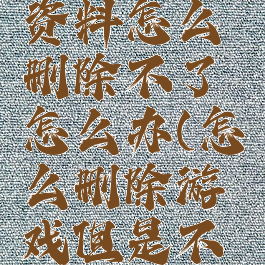 资料怎么
删除不了
怎么办(怎
么删除游
戏但是不